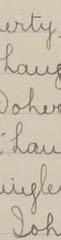 erty
haug
Doher
'Lau
uigle
Joh